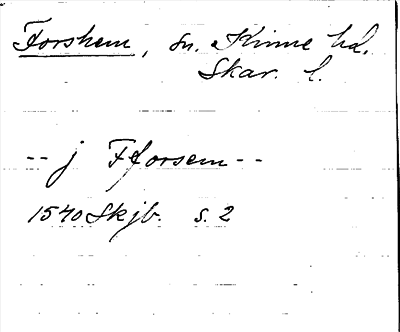 Forshem, sn. Kinne hd.
Skar. l.
-- j Fforsem --
1540 Skjb. s. 2